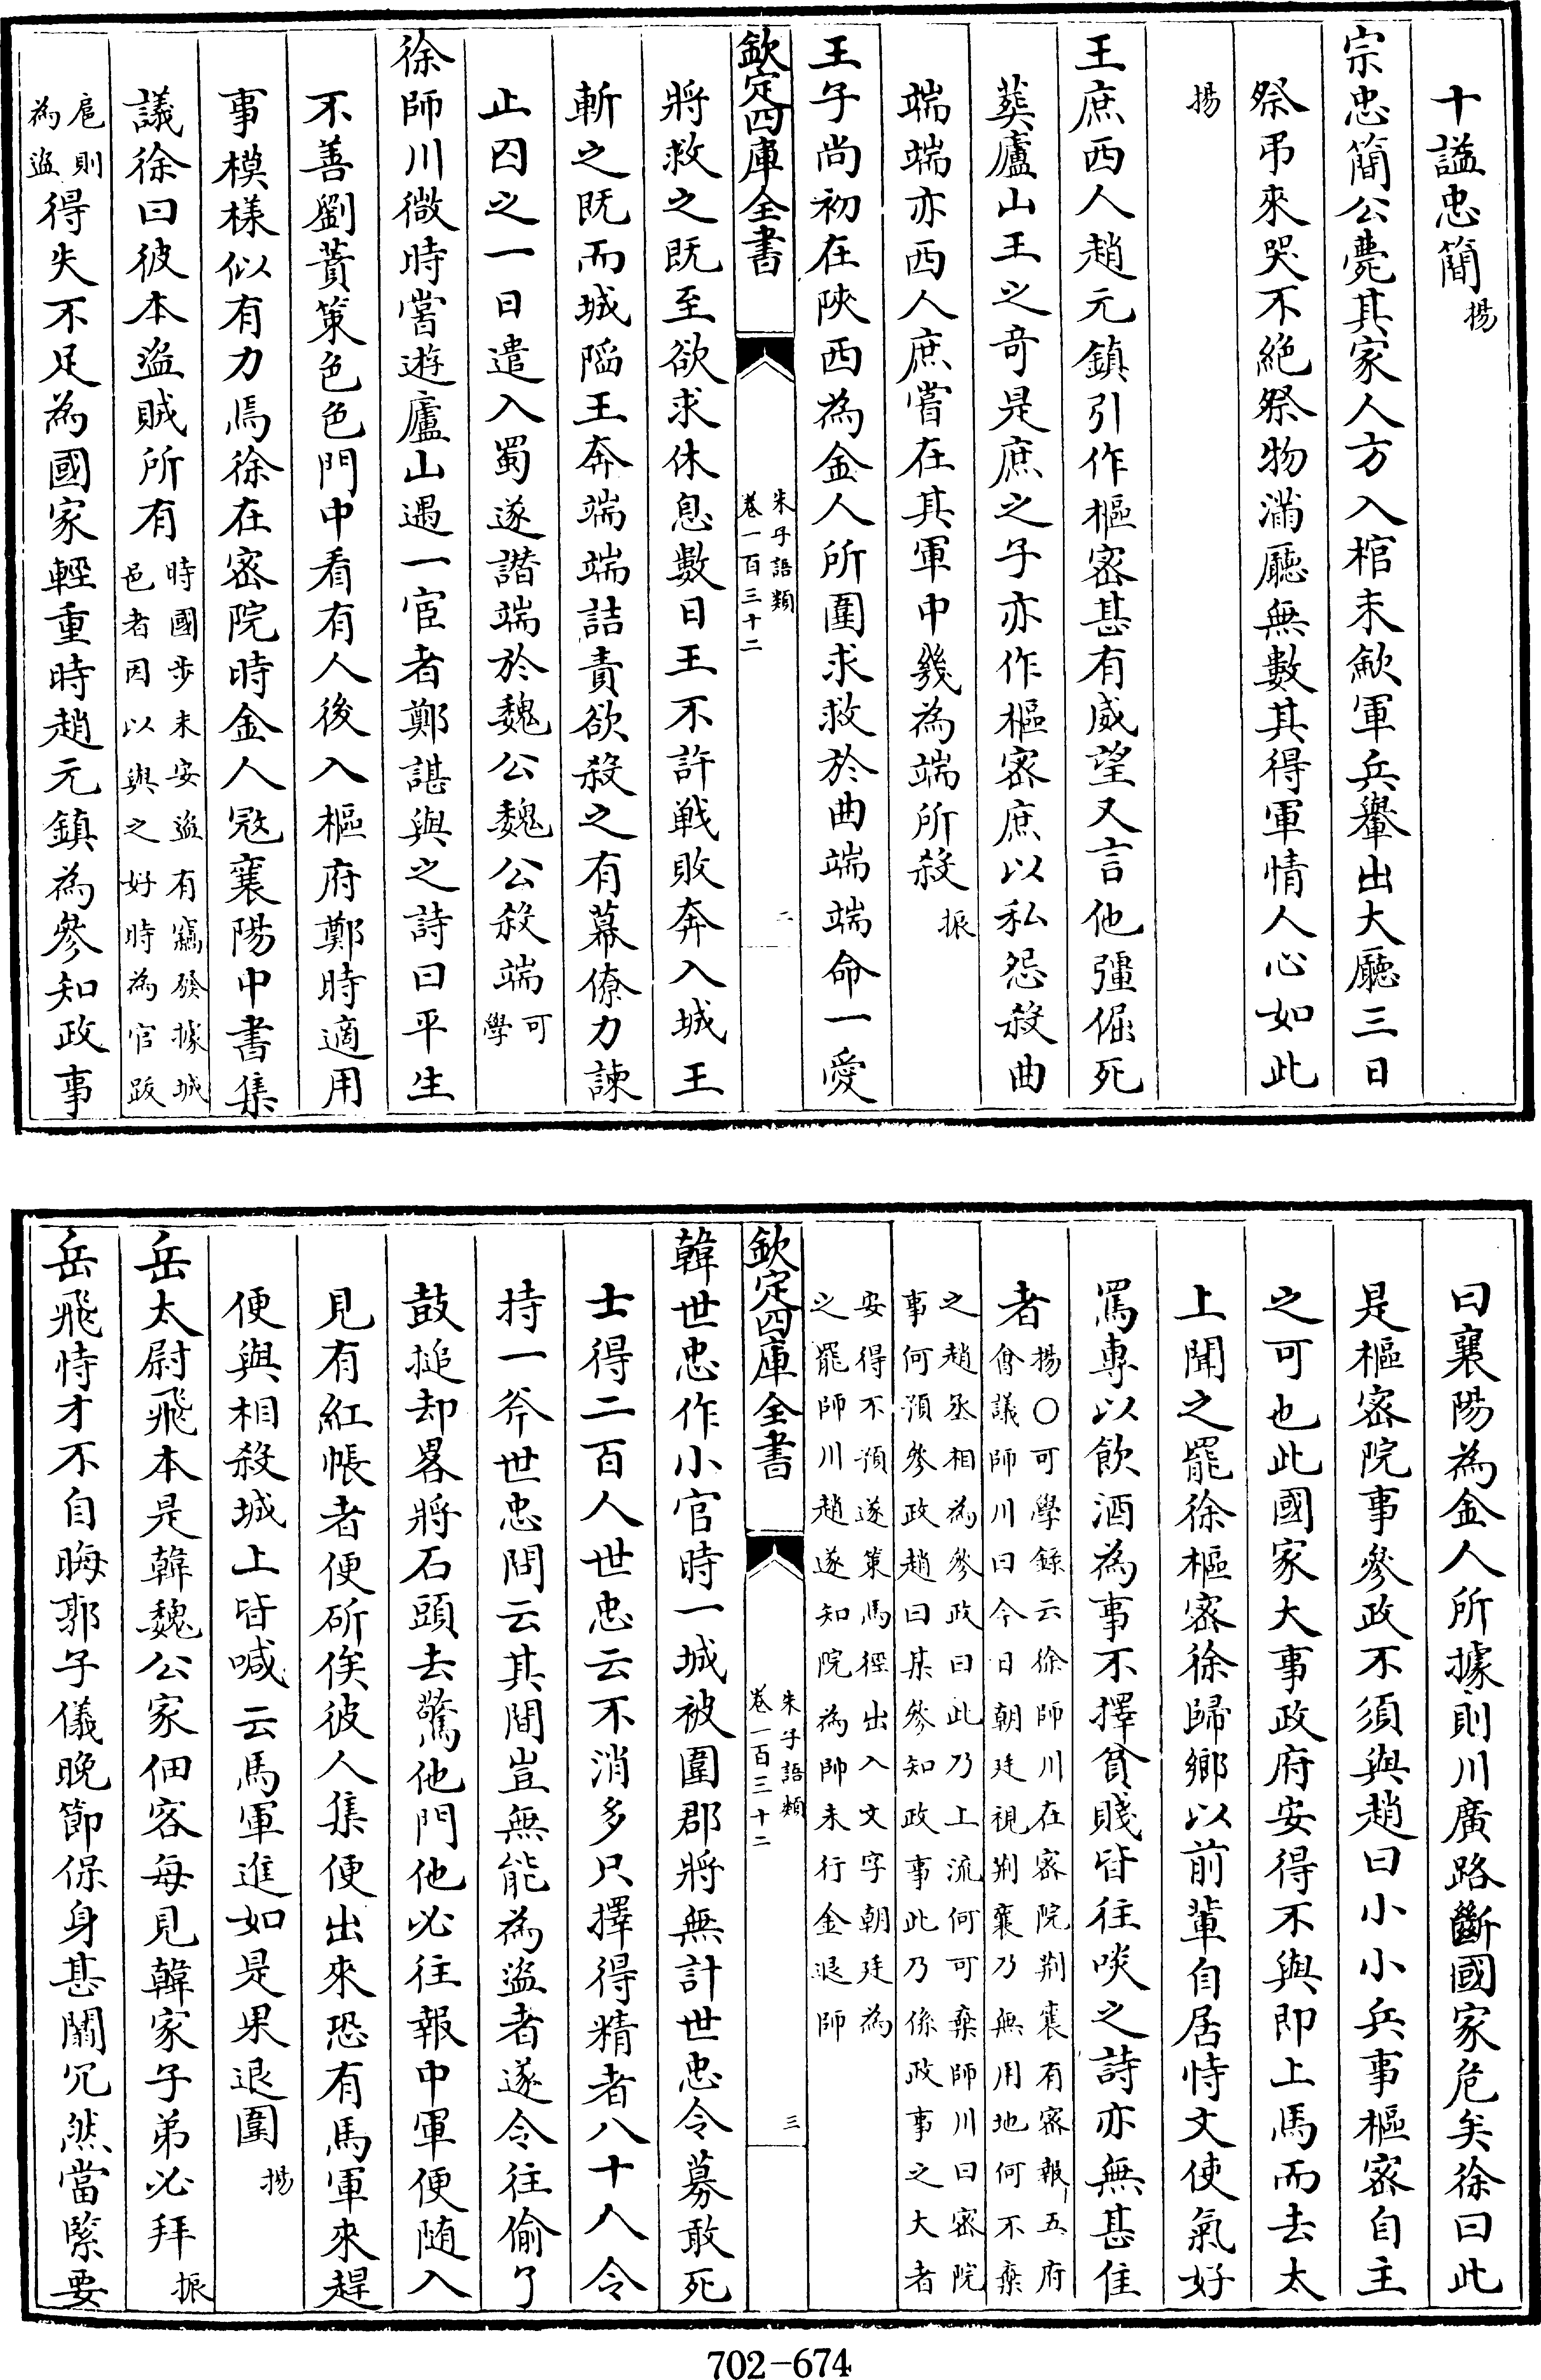 十諡忠簡揚
宗忠簡公薨其家人方入棺未歛軍兵轝出大廳三日
祭弔來哭不絶祭物滿廳無數其得軍情人心如此
揚
王庶西人趙元鎮引作樞密甚有威望又言他彊倔死
葬廬山王之奇是庶之子亦作樞密庶以私怨殺曲
端端亦西人庶嘗在其軍中幾為端所殺振
王子尚初在陜西為金人所圍求救於曲端端命一愛
欽定四庫全書
朱子語類
卷一百三十二
二
將救之既至欲求休息數日王不許戰敗奔入城王
斬之既而城陷王奔端端詰責欲殺之有幕僚力諫
止囚之一日遣入蜀遂譖端於魏公魏公殺端可學
徐師川微時嘗遊廬山遇一宦者鄭諶與之詩曰平生
不善劉蕡策色色門中看有人後入樞府鄭時適用
事模樣似有力焉徐在密院時金人寇襄陽中書集
議徐曰彼本盜賊所有時國步未安盜有竊發據城邑者因以與之好時為官跋
扈則為盜得失不足為國家輕重時趙元鎮為參知政事
曰襄陽為金人所據則川廣路斷國家危矣徐曰此
是樞密院事參政不須與趙曰小小兵事樞密自主
之可也此國家大事政府安得不與即上馬而去太
上聞之罷徐樞密徐歸鄉以前輩自居恃文使氣好
罵專以飲酒為事不擇貧賤皆往啖之詩亦無甚佳
者揚○可學録云徐師川在密院荆襄有密報五府會議師川曰今日朝廷視荆襄乃無用地何不棄
之趙丞相為參政曰此乃上流何可棄師川曰密院事何預參政趙曰某參知政事此乃係政事之大者
安得不預遂策馬徑出入文字朝廷為之罷師川趙遂知院為帥未行金退師
欽定四庫全書
朱子語類
卷一百三十二
三
韓世忠作小官時一城被圍郡將無計世忠令募敢死
士得二百人世忠云不消多只擇得精者八十人令
持一斧世忠問云其間豈無能為盜者遂令往偷了
鼓搥却畧將石頭去驚他門他必往報中軍便随入
見有紅帳者便斫俟彼人集便出來恐有馬軍來趕
便與相殺城上皆喊云馬軍進如是果退圍揚
岳太尉飛本是韓魏公家佃客每見韓家子弟必拜振
岳飛恃才不自晦郭子儀晚節保身甚闒冗然當緊要
702-674